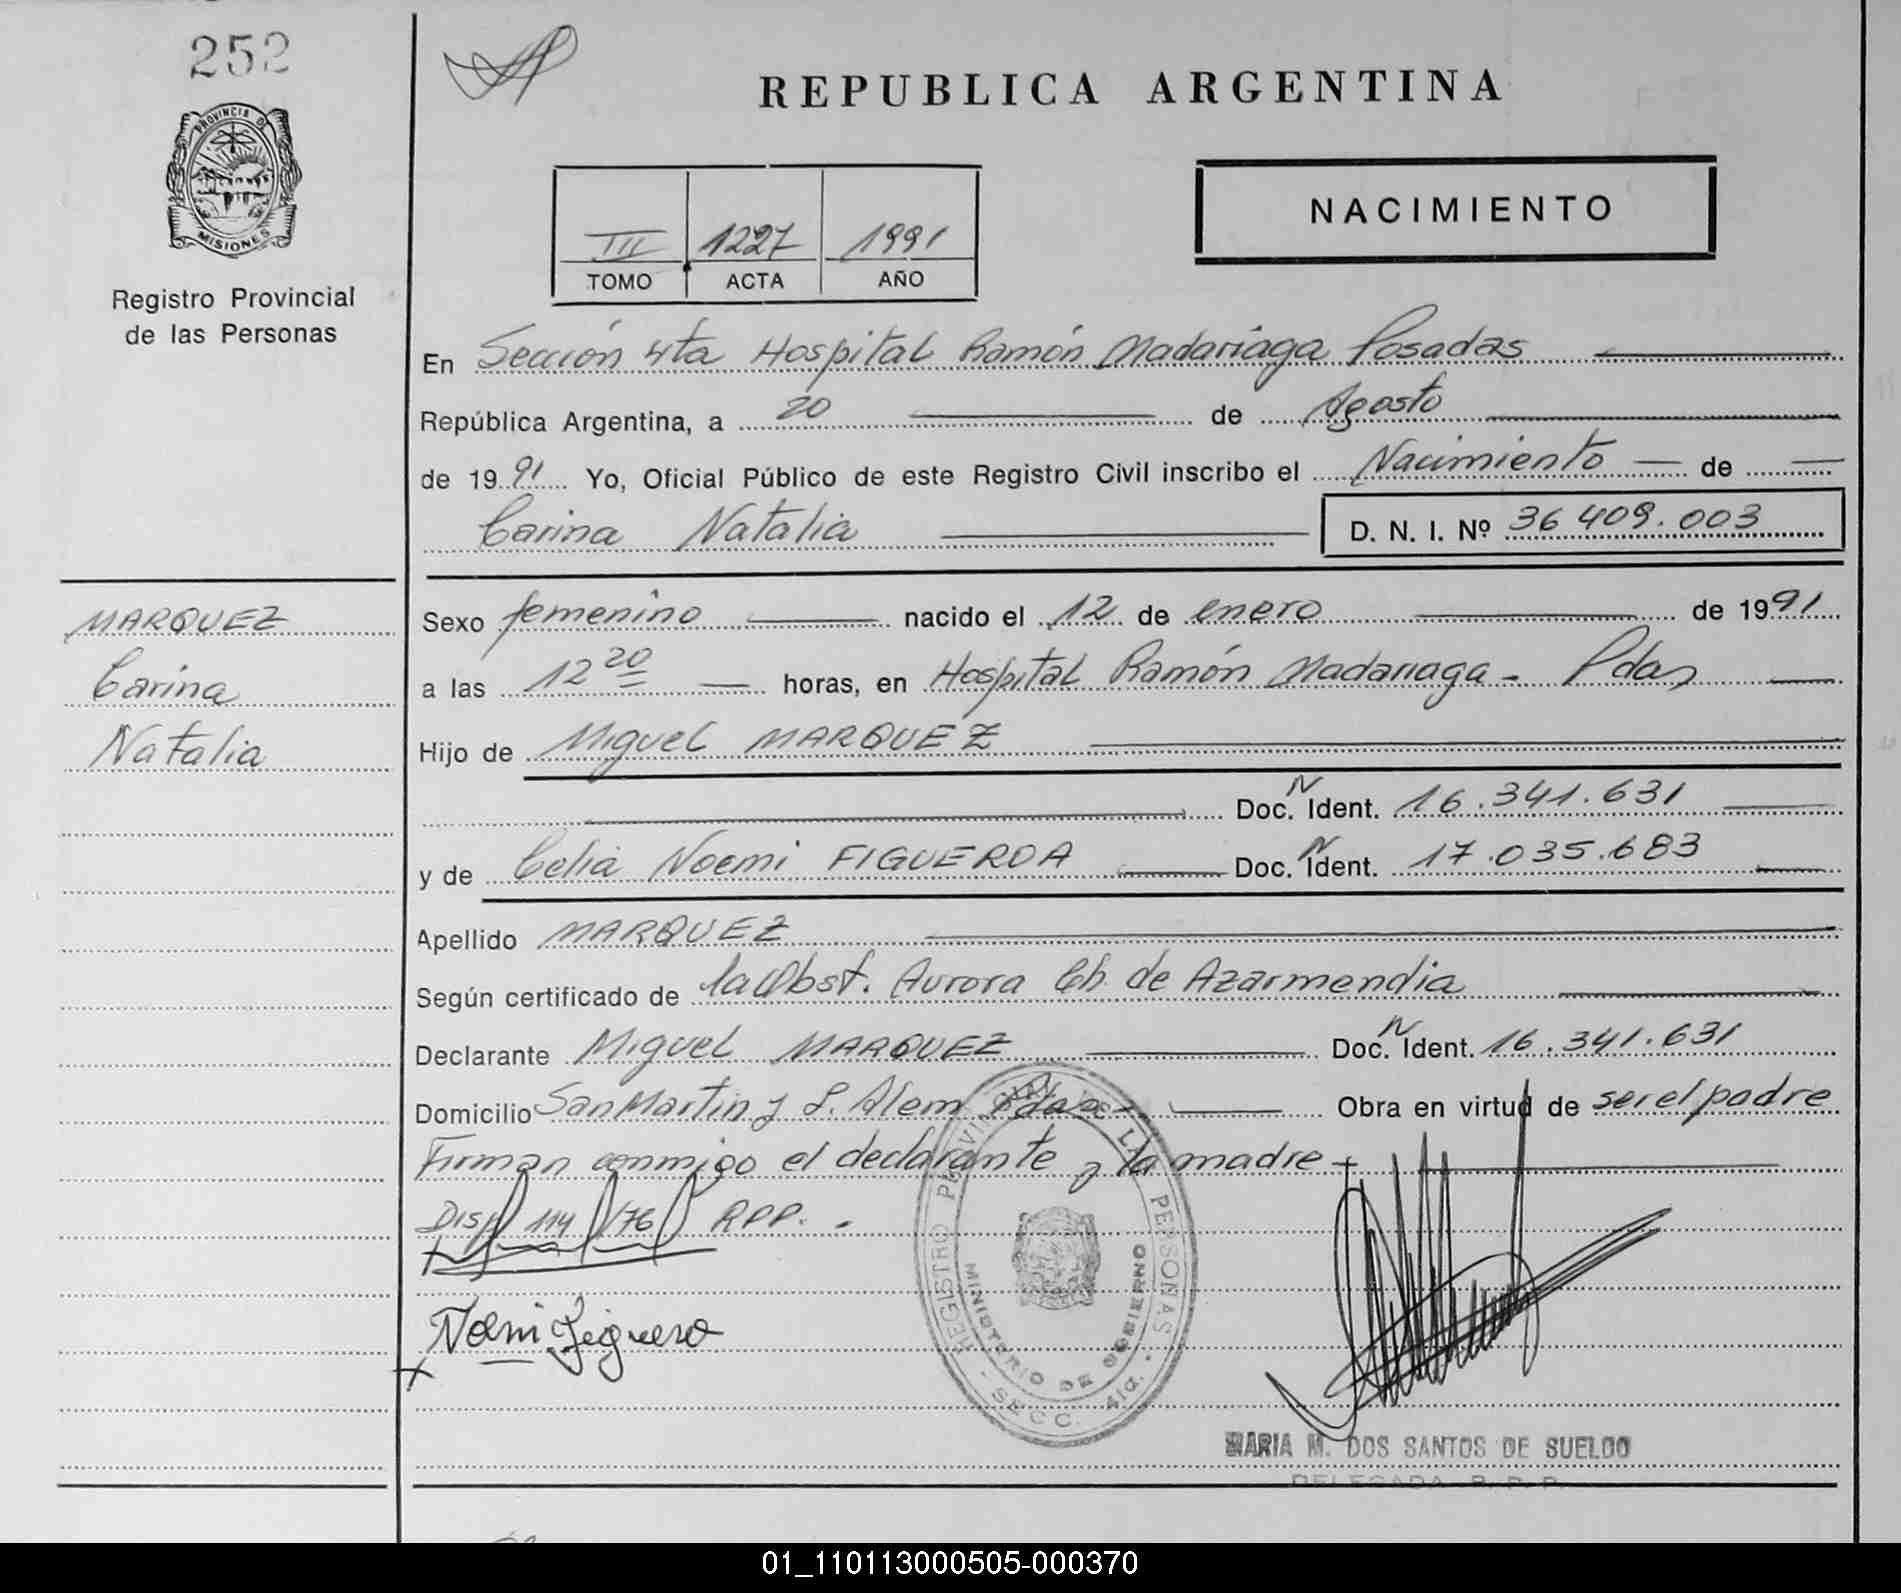 252
PROVINCIA DE
MISIONES
Registro Provincial
de las Personas
MARQUEZ
Carina
Natalia
REPUBLICA ARGENTINA
III 1227 1991
TOMO ACTA AÑO
NACIMIENTO
En Sección 4ta Hospital Ramón Madariaga Posadas
República Argentina, a 20 de Agosto
de 1991 Yo, Oficial Público de este Registro Civil inscribo el Nacimiento de
Carina Natalia D. N. I. Nº 36 409.003
Sexo femenino nacido el 12 de enero de 1991
a las 12 20 horas, en Hospital Ramón Madariaga - Pdas
Hijo de Miguel MARQUEZ
Doc. N Ident. 16.341.631
y de Celia Noemi FIGUEROA Doc. N Ident. 17.035.683
Apellido MARQUEZ
Según certificado de la Obst. Aurora Ch. de Azarmendia
Declarante Miguel MARQUEZ Doc. N Ident. 16.341.631
Domicilio San Martin y L. Alem Pdas - Obra en virtud de ser el padre
Firman conmigo el declarante y la madre
Disp 114/76 RPP. -
Noemi Figueroa
REGISTRO PROVINCIAL DE LAS PERSONAS
MINISTERIO DE GOBIERNO
- SECC. 4ta. -
MARIA M. DOS SANTOS DE SUELDO
DELEGADA R. P. P.
01_110113000505-000370